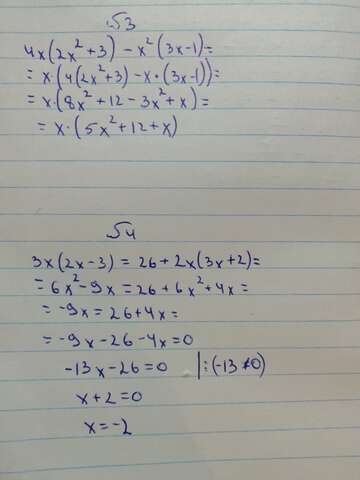 √3
4x(2x²+3) - x²(3x-1)=
= x·(4(2x²+3) - x·(3x-1))=
= x·(8x²+12-3x²+x)=
= x·(5x²+12+x)
√4
3x(2x-3) = 26+2x(3x+2)=
= 6x²-9x = 26+6x²+4x=
= -9x = 26+4x=
= -9x-26-4x=0
-13x-26=0 |:(-13≠0)
x+2=0
x=-2